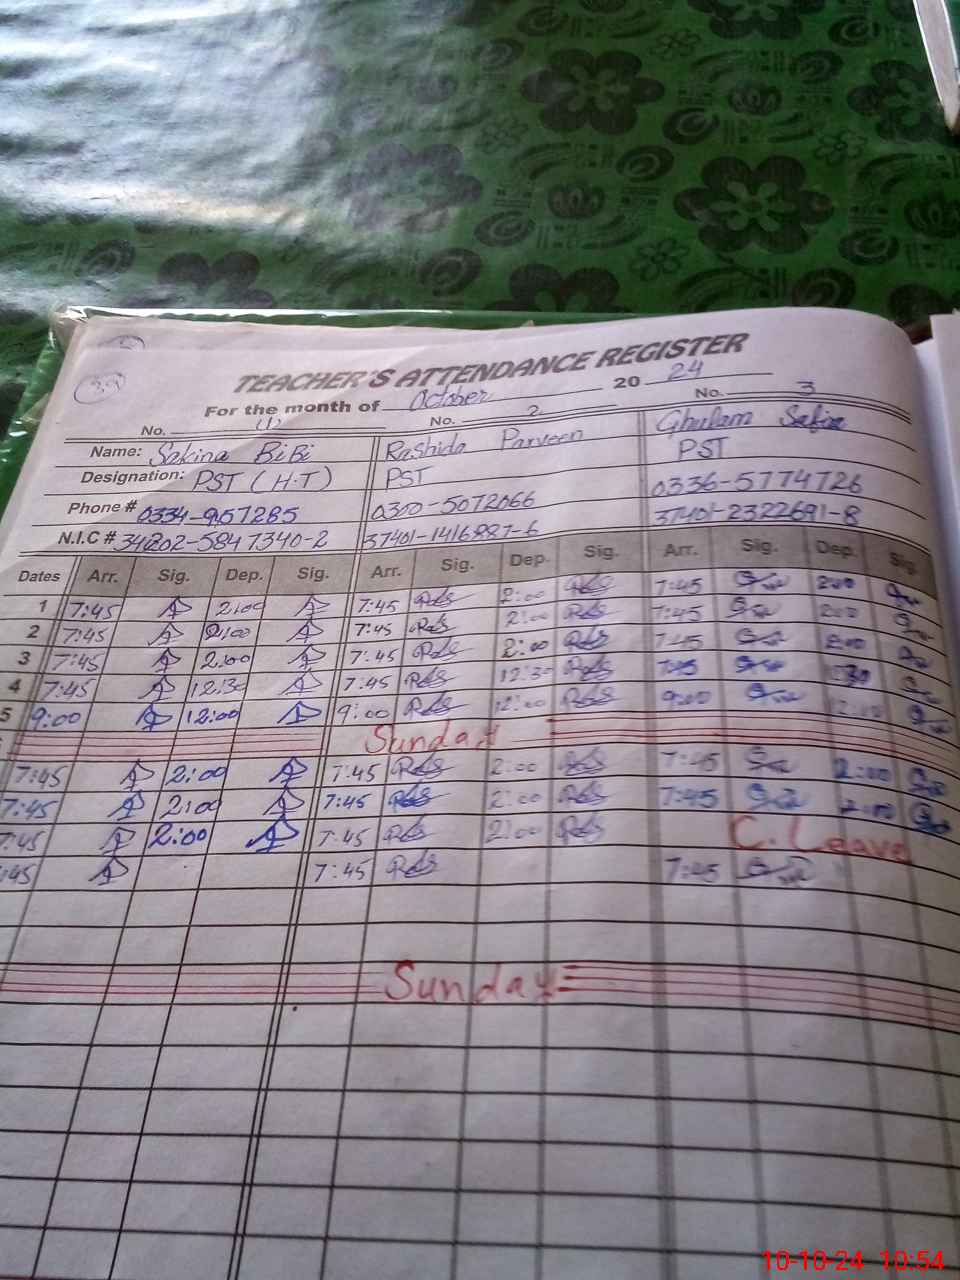 TEACHER'S ATTENDANCE REGISTER
For the month of October 2024
No. (1) No. 2 No. 3
Name: Sakina BiBi Rashida Parveen Ghulam
Designation: PST (H.T) PST PST
Phone # 0334-9157285 0300-5072066 0336-5774726
N.I.C # 34202-5847340-2 37401-1416887-6 37401-2322691-8
Dates Arr. Sig. Dep. Sig. Arr. Sig. Dep. Sig. Arr. Sig. Dep. Sig.
1 7:45 2:00 7:45 2:00 7:45 2:00
2 7:45 2:00 7:45 2:00 7:45 2:00
3 7:45 2:00 7:45 2:00 7:45 2:00
4 7:45 12:30 7:45 12:30 7:45
5 9:00 12:00 9:00 12:00 9:00 12:00
Sunday
7:45 2:00 7:45 2:00 7:45 2:00
7:45 2:00 7:45 2:00 7:45 2:00
7:45 2:00 7:45 2:00 C. Leave
:45 7:45 7:45
Sunday
10-10-24 10:54